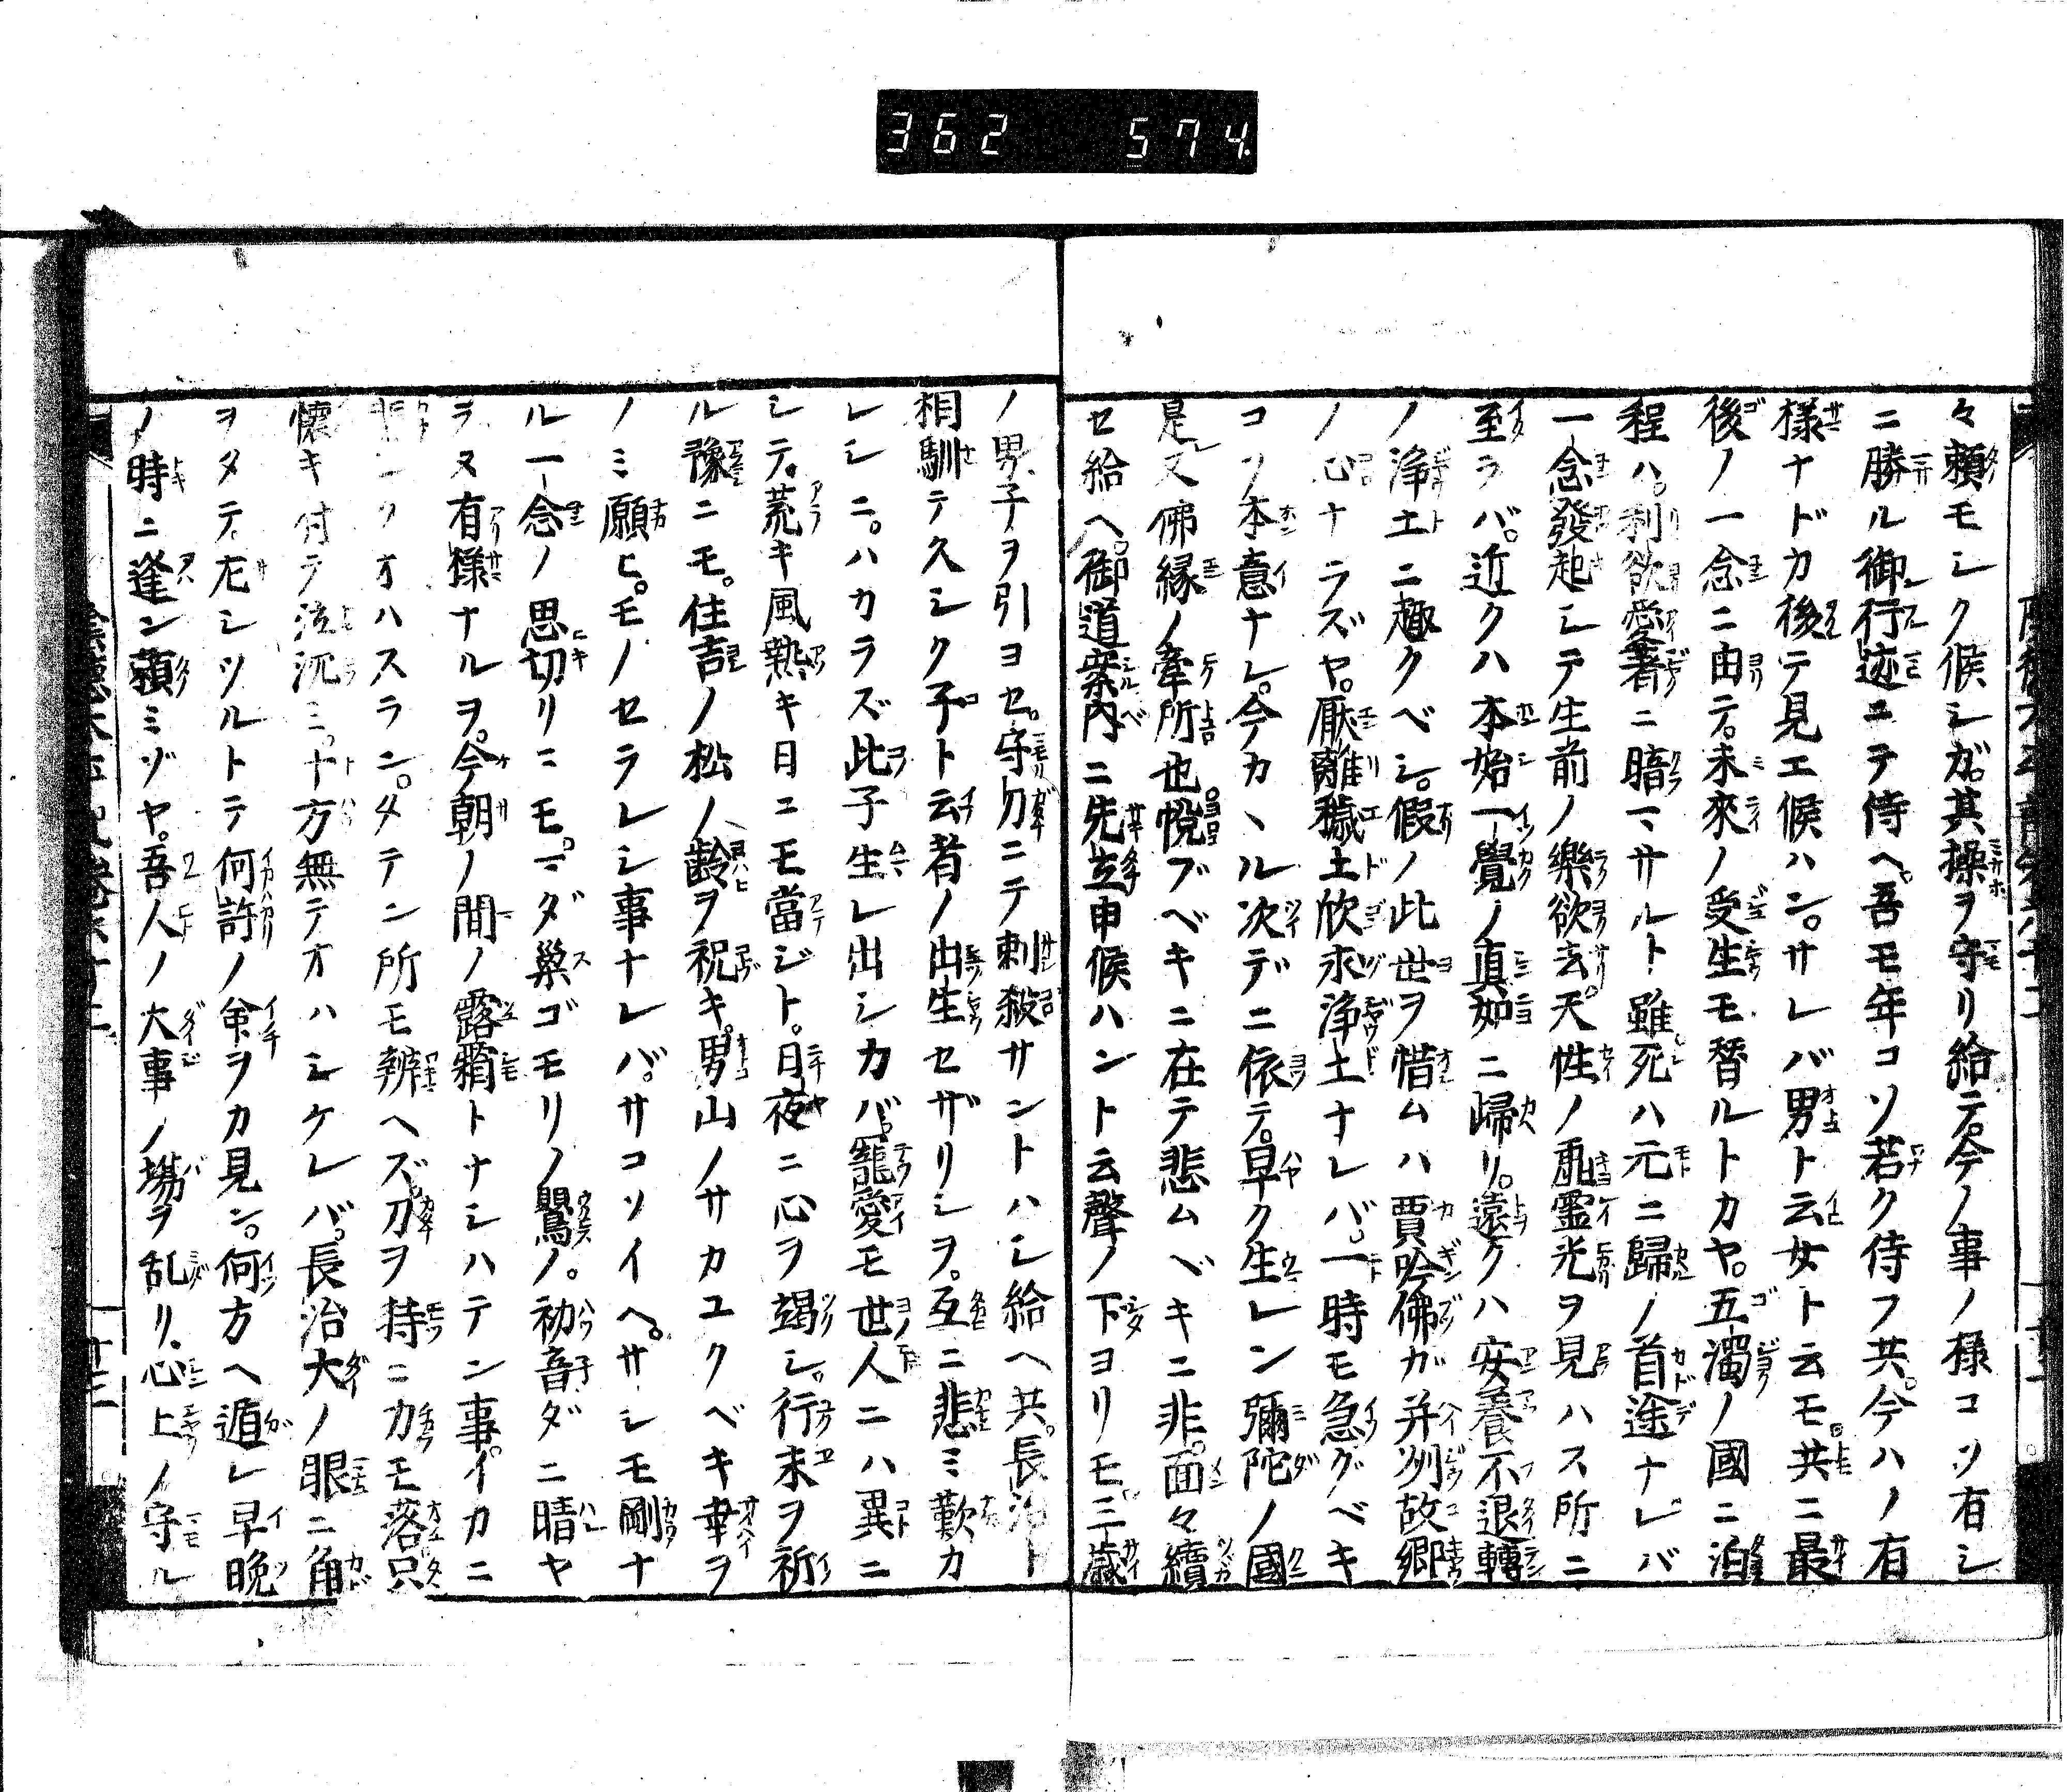 362 574
々頼モシク候シガ。其操ヲ守リ給テ。今ノ事ノ様コソ有シ
ニ勝ル御行迹ニテ侍ヘ。吾モ年コソ若ク侍フ共。今ハノ有
様ナドカ後テ見エ候ハン。サレバ男ト云女ト云モ。共ニ最
後ノ一念ニ由テ。未來ノ受生モ替ルトカヤ。五濁ノ國ニ泊
程ハ。利欲愛著ニ暗マサルト雖。死ハ元ニ歸ノ首途ナレバ
一念發起シテ生前ノ樂欲去。天性ノ霊光ヲ見ハス所ニ
至ラバ。近クハ本始一覺ノ真如ニ歸リ。遠クハ安養不退轉
ノ浄土ニ趣クベシ。假ノ此世ヲ惜ムハ賈吟佛ガ并州故郷
ノ心ナラズヤ。厭離穢土欣求浄土ナレバ。一時モ急グベキ
コソ本意ナレ。今カヽル次デニ依テ。早ク生レン彌陀ノ國
是レ又佛縁ノ牽所也。悦ブベキニ在テ悲ムベキニ非。面々續
セ給ヘ。御道案内ニ先立申候ハント云聲ノ下ヨリモ。三歳
ノ男子ヲ引ヨセ。守刀ニテ刺殺サントハシ給ヘ共。長治ト
相馴テ久シク子ト云者ノ出生セザリシヲ。互ニ悲ミ歎カ
レシニ。ハカラズ此子生レ出シカバ。寵愛モ世人ニハ異ニ
シテ。荒キ風熱キ日ニモ當ジト。日夜ニ心ヲ竭シ。行末ヲ祈
ル豫ニモ。住吉ノ松ノ齢ヲ祝キ。男山ノサカユクベキ幸ヲ
ノミ願ヒ。モノセラレシ事ナレバ。サコソイヘ。サシモ剛ナ
ル一念ノ思切リニモ。マダ巣ゴモリノ鶯ノ。初音ダニ晴ヤ
ラヌ有様ナルヲ。今朝ノ間ノ露霜トナシハテン事。イカニ
悲シクオハスラン。タテン所モ辨ヘズ。刀ヲ持ニ力モ落。只
懐キ付テ泣沉ミ。十方無テオハシケレバ。長治大ノ眼ニ角
ヲタテ。左シツルトテ何許ノ命ヲカ見ン。何方ヘ遁レ早晩
ノ時ニ逢ン頼ミゾヤ。吾人ノ大事ノ場ヲ乱リ。心上ノ守ル